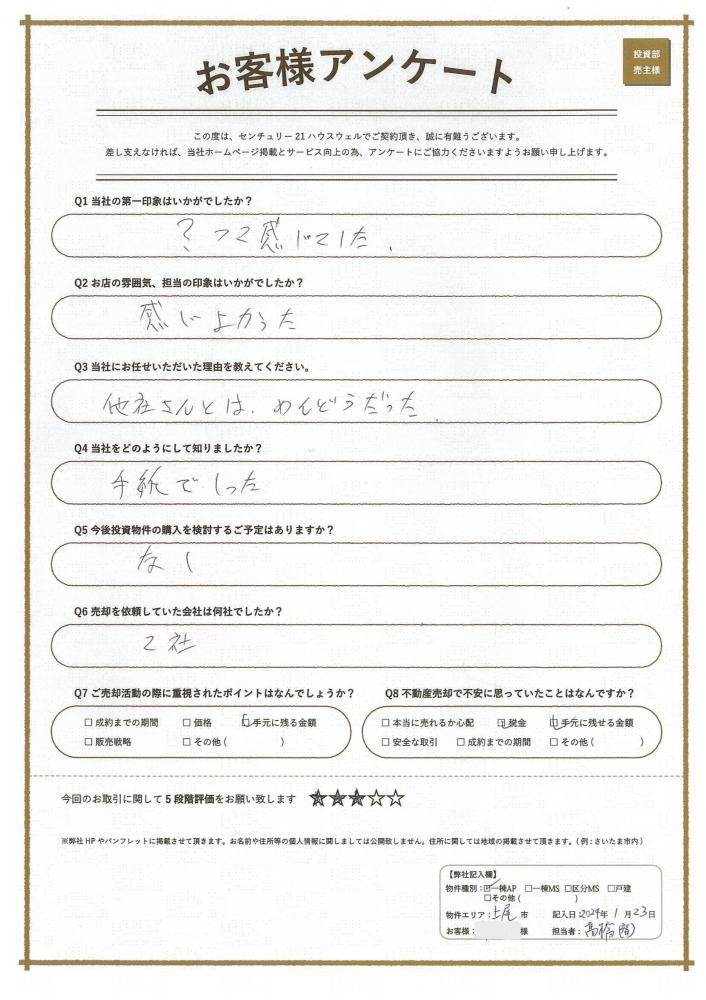 お客様アンケート
投資部
売主様
この度は、センチュリー21ハウスウェルでご契約頂き、誠に有難うございます。
差し支えなければ、当社ホームページ掲載とサービス向上の為、アンケートにご協力くださいますようお願い申し上げます。
Q1 当社の第一印象はいかがでしたか？
？って感じでした.
Q2 お店の雰囲気、担当の印象はいかがでしたか？
感じよかった
Q3 当社にお任せいただいた理由を教えてください。
他社さんとは、めんどうだった.
Q4 当社をどのようにして知りましたか？
手紙でしった
Q5 今後投資物件の購入を検討するご予定はありますか？
なし
Q6 売却を依頼していた会社は何社でしたか？
2社
Q7 ご売却活動の際に重視されたポイントはなんでしょうか？
□ 成約までの期間 □ 価格 ☑ 手元に残る金額
□ 販売戦略 □ その他（ ）
Q8 不動産売却で不安に思っていたことはなんですか？
□ 本当に売れるか心配 ☑ 税金 ☑ 手元に残せる金額
□ 安全な取引 □ 成約までの期間 □ その他（ ）
今回のお取引に関して 5 段階評価をお願い致します ★★★☆☆
※弊社 HP やパンフレットに掲載させて頂きます。お名前や住所等の個人情報に関しましては公開致しません。住所に関しては地域の掲載させて頂きます。（例：さいたま市内）
【弊社記入欄】
物件種別：☑一棟AP □一棟MS □区分MS □戸建
□その他（ ）
物件エリア：上尾 市 記入日：2024年 1 月 23日
お客様： 様 担当者：高橋